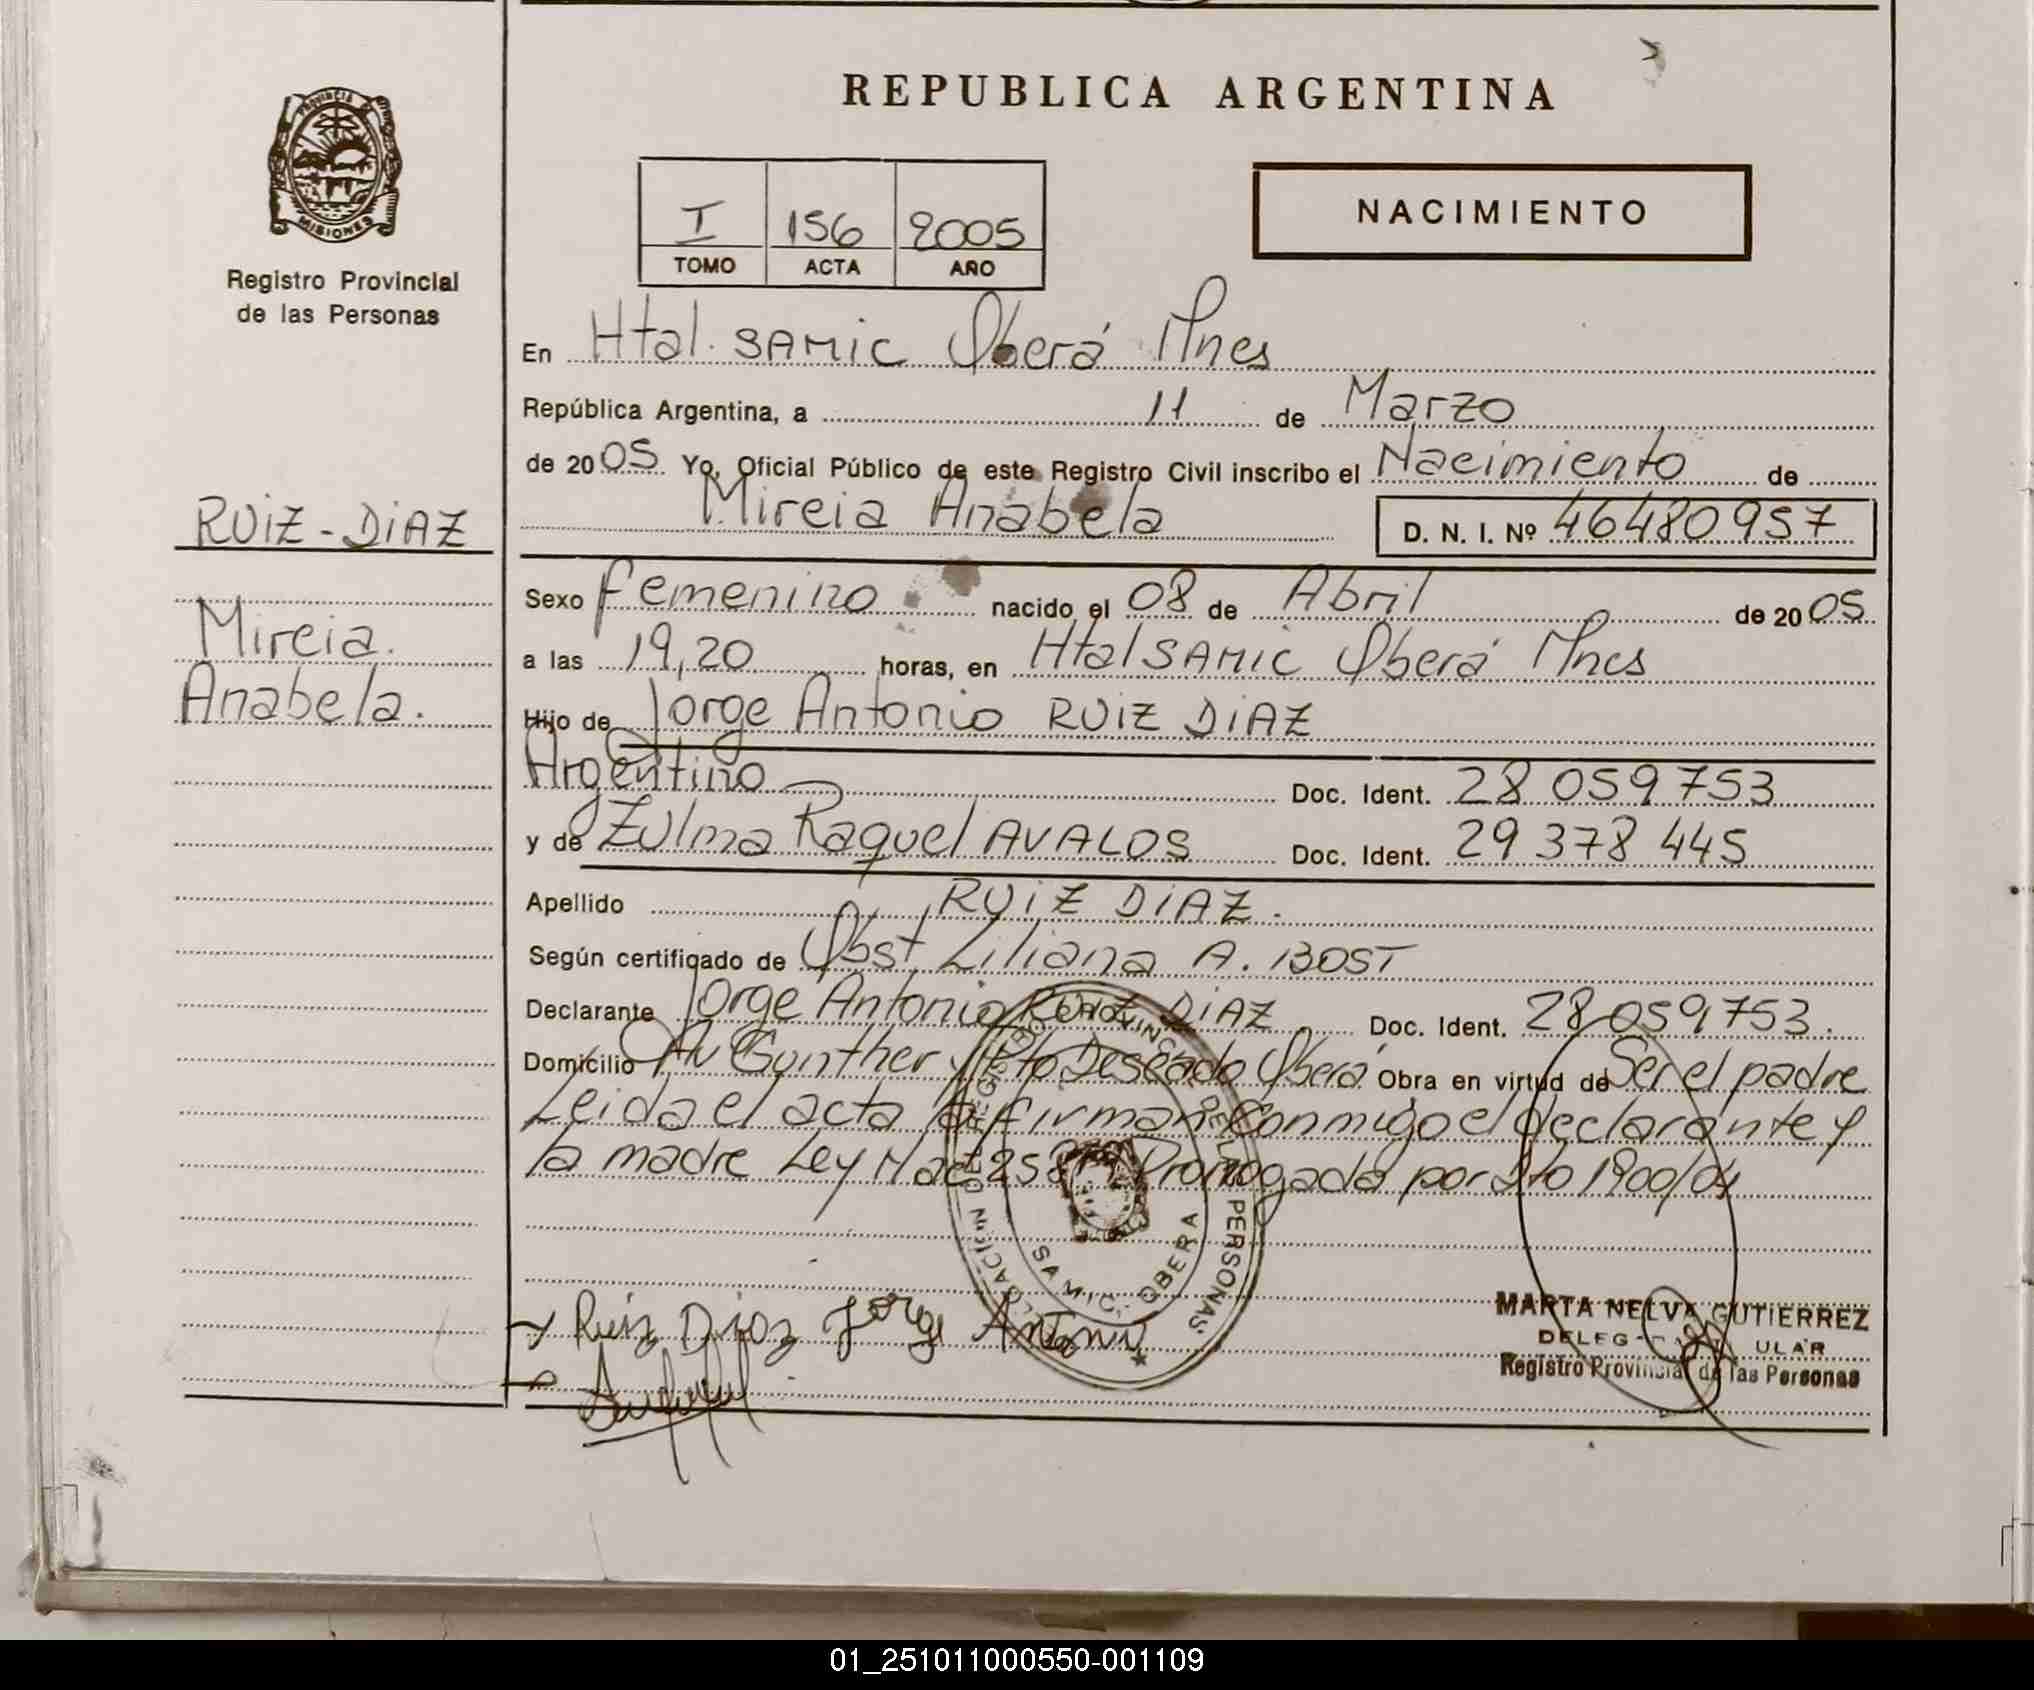 REPUBLICA ARGENTINA
PROVINCIA DE
MISIONES
Registro Provincial
de las Personas
I 156 2005
TOMO ACTA AÑO
NACIMIENTO
En Htal. SAMIC Oberá Mnes
República Argentina, a 11 de Marzo
de 2005. Yo, Oficial Público de este Registro Civil inscribo el Nacimiento de
Mireia Anabela
D. N. I. Nº 46480957
RUIZ-DIAZ
Mireia.
Anabela.
Sexo Femenino nacido el 08 de Abril de 2005
a las 19,20 horas, en Htal SAMIC Oberá Mnes
Hijo de Jorge Antonio RUIZ DIAZ
Argentino Doc. Ident. 28 059 753
y de Zulma Raquel AVALOS Doc. Ident. 29 378 445
Apellido RUIZ DIAZ.
Según certificado de Obst Liliana A. BOST
Declarante Jorge Antonio RUIZ DIAZ Doc. Ident. 28 059 753.
Domicilio Av Gunther y Pto Deseado Oberá Obra en virtud de Ser el padre
Leida el acta la firman conmigo el declarante y
la madre Ley Nac Prorrogada por Dto 1900/04
REGISTRO PROVINCIAL DE LAS PERSONAS
SAMIC. OBERA
Ruiz Diaz Jorge Antonio
MARTA NELVA GUTIERREZ
Registro Provincial de las Personas
01_251011000550-001109